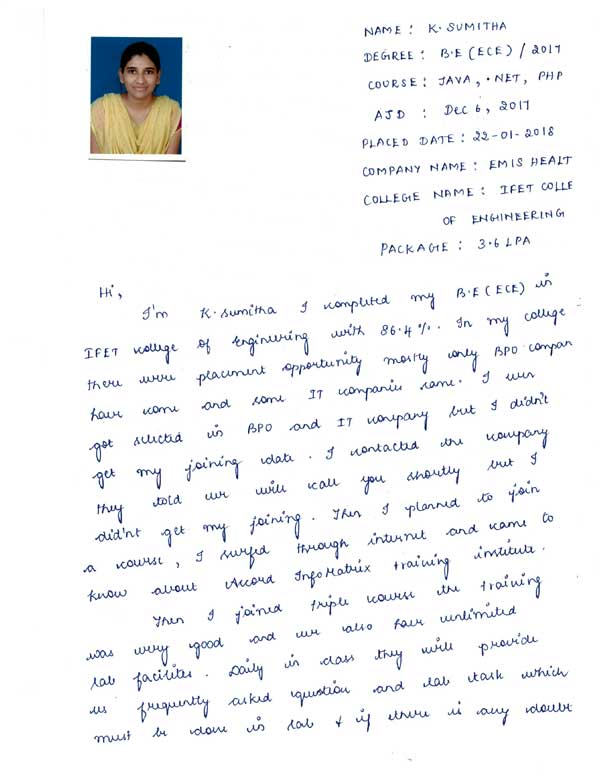 NAME : K. SUMITHA
DEGREE : B.E (ECE) / 2017
COURSE : JAVA, .NET, PHP
AJD : Dec 6, 2017
PLACED DATE : 22-01-2018
COMPANY NAME : EMIS HEALT
COLLEGE NAME : IFET COLLE
OF ENGINEERING
PACKAGE : 3.6 LPA
Hi,
I'm K. Sumitha I completed my B.E (ECE) in
IFET college of Engineering with 86.4%. In my college
there were placement opportunity mostly only BPO compan
have come and some IT companies came. I was
got selected in BPO and IT company but I didn't
get my joining date. I contacted the company
they told we will call you shortly but I
did'nt get my joining. Then I planned to join
a course, I surfed through internet and came to
know about Accord Info Matrix training institute.
Then I joined triple course the training
was very good and we also have unlimited
lab facilites. Daily in class they will provide
us frequently asked question and lab task which
must be done in lab & if there is any doubt